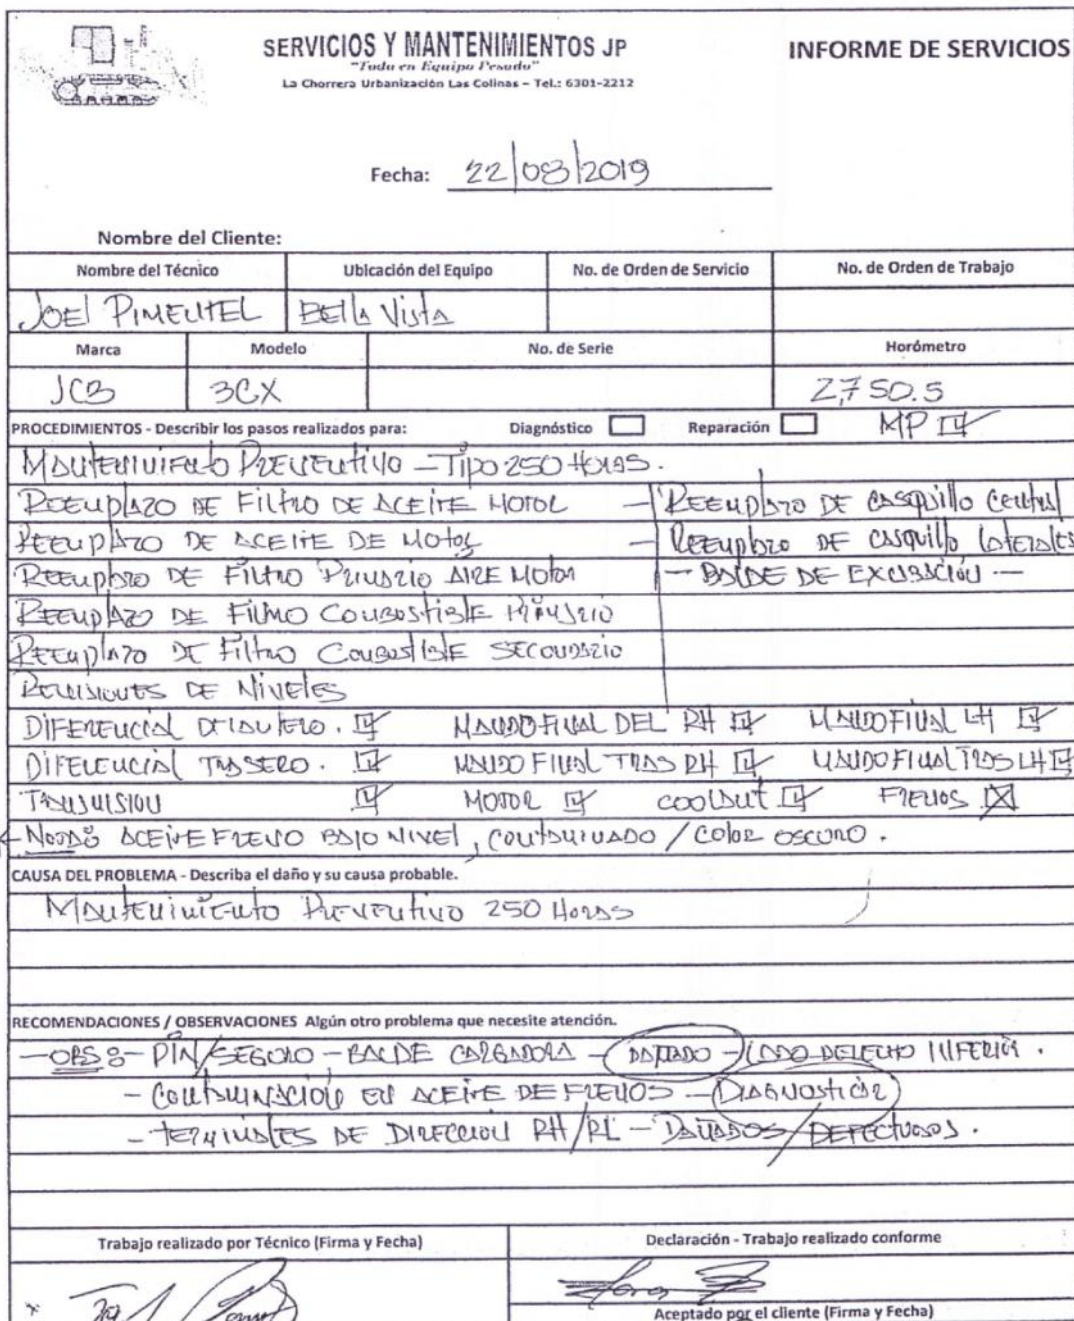 SERVICIOS Y MANTENIMIENTOS JP
"Todo en Equipo Pesado"
La Chorrera Urbanización Las Colinas – Tel.: 6301-2212
INFORME DE SERVICIOS
Fecha: 22/08/2019
Nombre del Cliente:
Nombre del Técnico Ubicación del Equipo No. de Orden de Servicio No. de Orden de Trabajo
JOEL PIMENTEL BELLA VISTA
Marca Modelo No. de Serie Horómetro
JCB 3CX 2,750.5
PROCEDIMIENTOS - Describir los pasos realizados para: Diagnóstico Reparación MP
MANTENIMIENTO PREVENTIVO – TIPO 250 HORAS.
REEMPLAZO DE FILTRO DE ACEITE MOTOR – REEMPLAZO DE CASQUILLO CENTRAL
REEMPLAZO DE ACEITE DE MOTOR – REEMPLAZO DE CASQUILLO LATERALES
REEMPLAZO DE FILTRO PRIMARIO AIRE MOTOR – BALDE DE EXCAVACIÓN –
REEMPLAZO DE FILTRO COMBUSTIBLE PRIMARIO
REEMPLAZO DE FILTRO COMBUSTIBLE SECUNDARIO
REVISIONES DE NIVELES
DIFERENCIAL DELANTERO. MANDO FINAL DEL RH MANDO FINAL LH
DIFERENCIAL TRASERO. MANDO FINAL TRAS RH MANDO FINAL TRAS LH
TRANSMISION MOTOR COOLANT FRENOS
ACEITE FRENO BAJO NIVEL, CONTAMINADO / COLOR OSCURO.
CAUSA DEL PROBLEMA - Describa el daño y su causa probable.
MANTENIMIENTO PREVENTIVO 250 HORAS
RECOMENDACIONES / OBSERVACIONES Algún otro problema que necesite atención.
– OBS: – PIN/SEGURO – BALDE CARGADORA – DAÑADO – LADO DERECHO INFERIOR.
– CONTAMINACIÓN EN ACEITE DE FRENOS – DIAGNOSTICAR
– TERMINALES DE DIRECCION RH/RL – DAÑADOS/DEFECTUOSOS.
Trabajo realizado por Técnico (Firma y Fecha) Declaración - Trabajo realizado conforme
Aceptado por el cliente (Firma y Fecha)